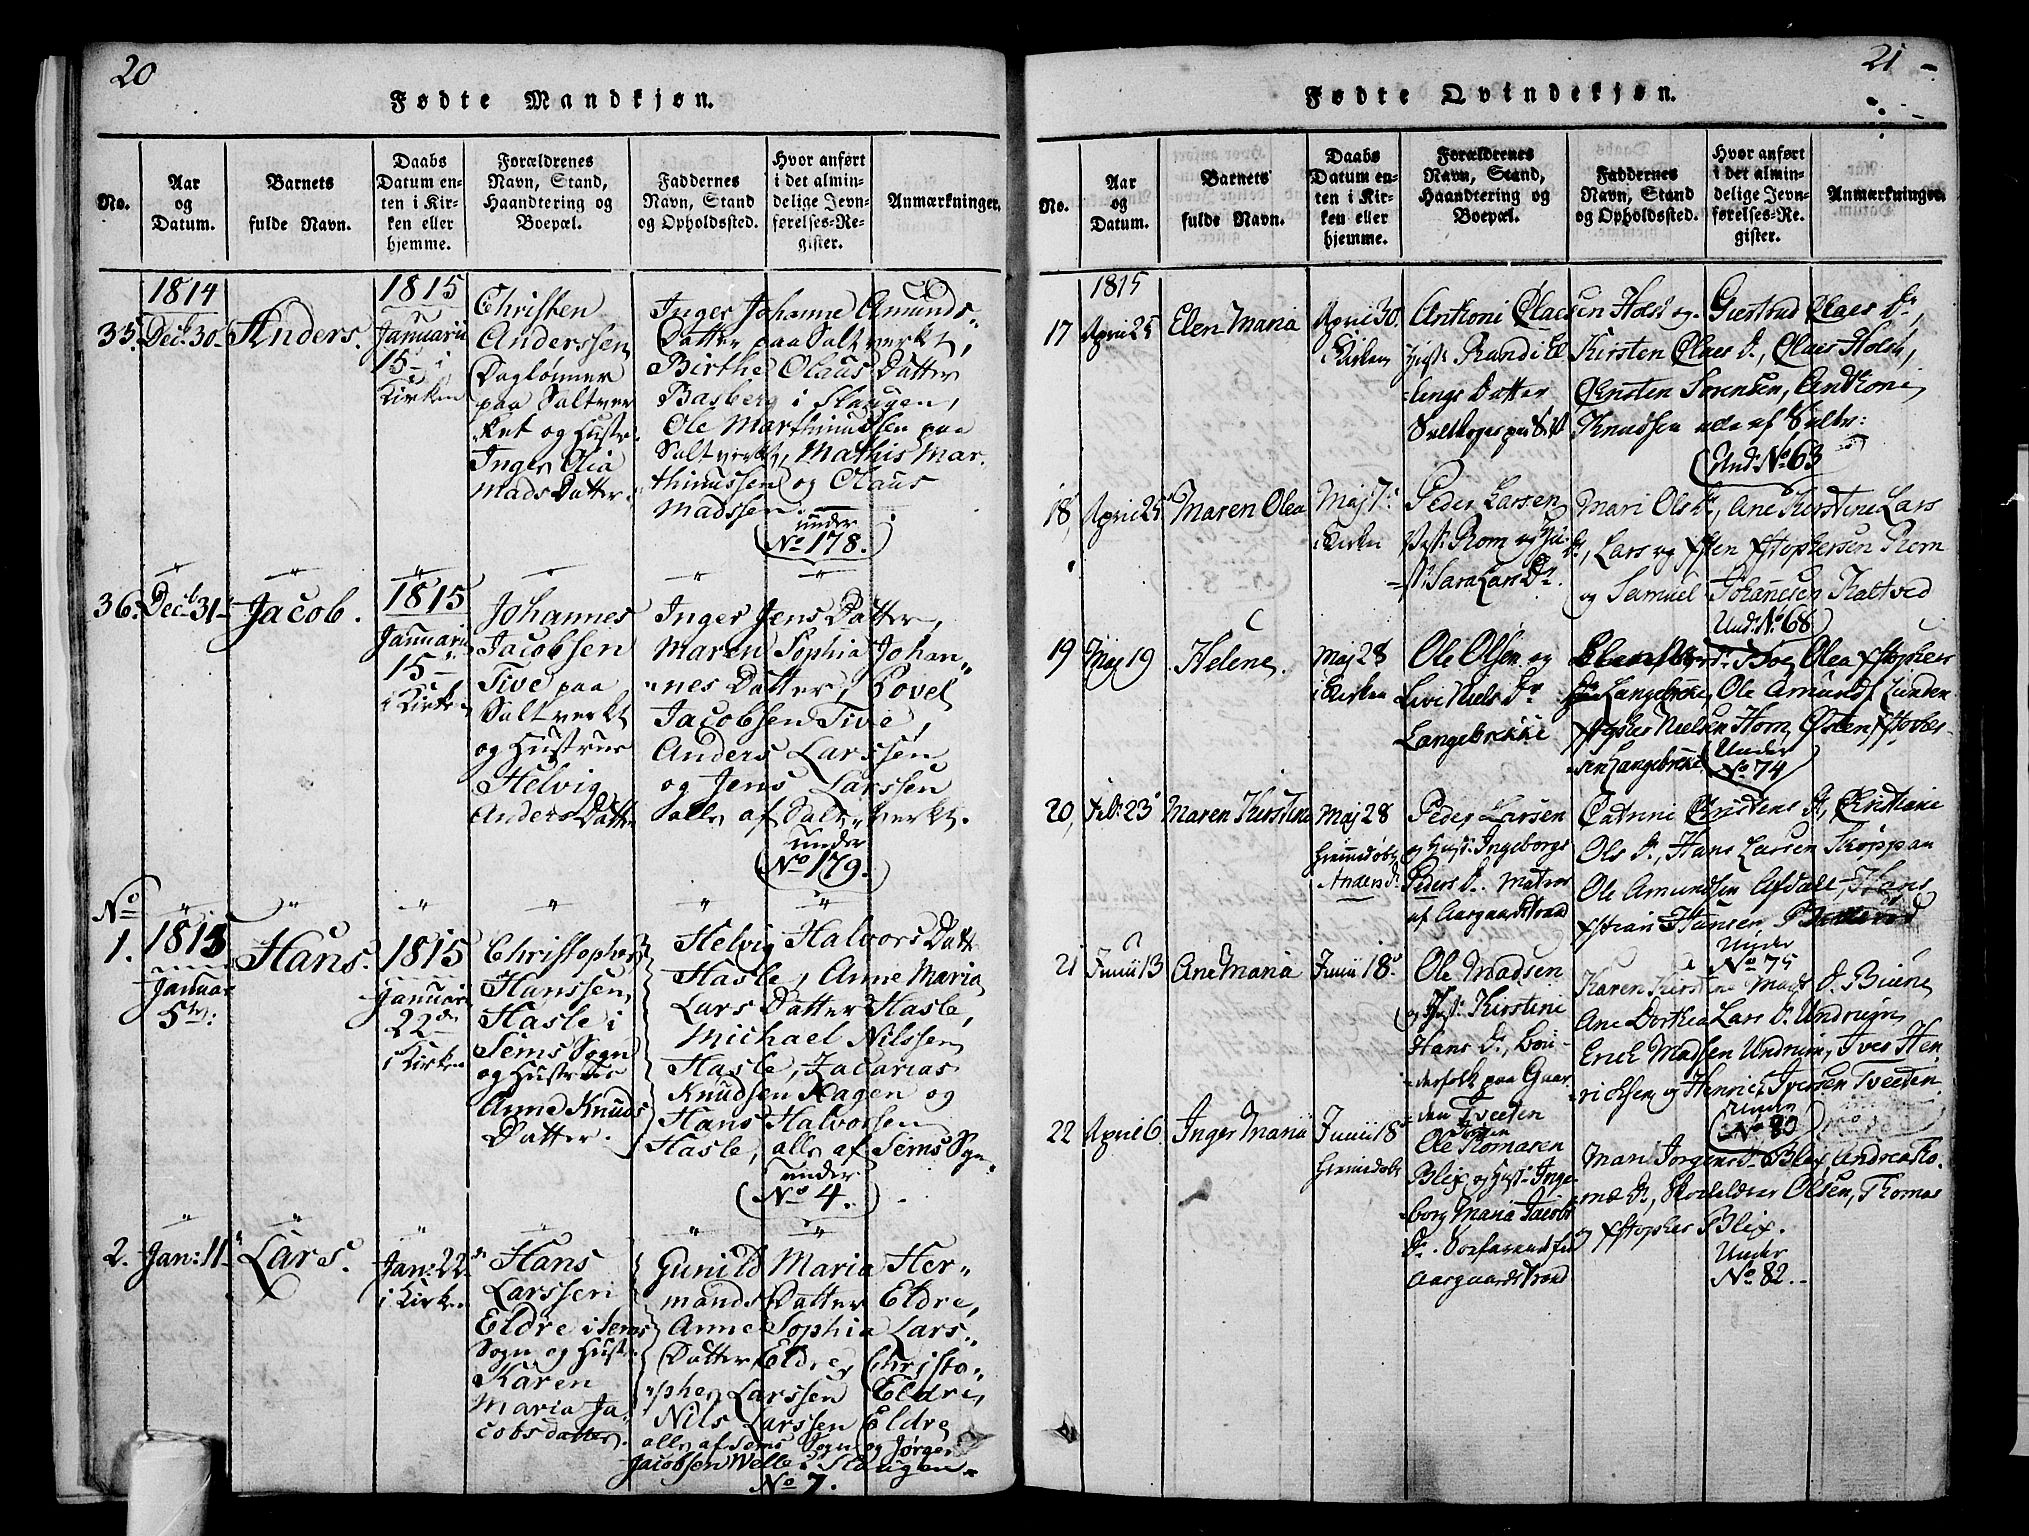 20
Fødte Mandkjøn.
No.
Aar
og
Datum.
Barnets
fulde Navn.
Daabs
Datum en-
ten i Kir-
ken eller
hjemme.
Forældrenes
Navn, Stand,
Haandtering og
Boepæl.
Faddernes
Navn, Stand
og Opholdssted.
Hvor anført
i det almin-
delige Jevn-
førelses-Re-
gister.
Anmærkninger.
1814
33. Decb. 30. Anders.
1815
Januarii
15
i
Kirken
Christen
Anderssen
Daglønner
paa Saltver
ket og Hustr.
Inger Olia
Mads Datter.
Inger Johanne Amunds-
Datter paa Saltverket,
Birthe Olaus Datter
Basberg i Slaugen,
Ole Marthinussen paa
Saltverket, Mathis Mar-
thinussen og Olaus
Madssen.
under
No 178.
36. Decb. 31. Jacob.
1815
Januarii
15
i Kirken
Johannes
Jacobsen
Tive paa
Saltverket
og Hustrue
Helvig
Anders Datter
Inger Jens Datter,
Maren Sophia Johan-
nes Datter, Povel
Jacobsen Tive,
Anders Larssen
og Jens Larssen
alle af Saltverket.
under
No 179.
No
1. 1815
Januar
5te
Hans.
1815
Januari
22de
i Kirken
Christopher
Hanssen
Hasle i
Sems Sogn
og Hustrue
Anne Knuds
Datter.
Helvig Halvors Datt
Hasle, Anne Maria
Lars Datter Hasle,
Michael Nilssen
Hasle, Zacarias
Knudsen Hagen og
Hans Halvorsen
Hasle, alle af Sems Sgn.
under
No 4.
2. Jan: 11. Lars.
Jan: 22
i Kirken
Hans
Larssen
Eldre i Sems
Sogn og Hustr.
Karen
Maria Ja-
cobsdatter.
Gunild Maria Her-
mands Datter Eldre,
Anne Sophia Lars-
Datter Eldre, Christo-
pher Larssen Eldre,
Nils Larssen Eldre
alle af Sems Sogn og Jørgen
Jacobsen Welle i Slaugen.
No 7.
21
Fødte Qvindekjøn.
No.
Aar
og
Datum.
Barnets
fulde Navn.
Daabs
Datum en-
ten i Kir-
ken eller
hjemme.
Forældrenes
Navn, Stand,
Haandtering og
Boepæl.
Faddernes
Navn, Stand
og Opholdssted.
Hvor anført
i det almin-
delige Jevn-
førelses-Re-
gister.
Anmærkninger.
1815
17 April 25 Elen Maria
April 30.
i Kirken
Antkoni Olaesen Holst og
Hust. Randi El
lings Datter
Kirsten Olaes D., Olaes Holst,
Sorensen, Antkoni
Knudsen
Und: No 63
18, April 25 Maren Olea
Maj 7
i Kirken
Peder Larsen
Rom og Hu-
st. Sara Lars Dr.
Mari Ols Dr, Ane Kirstine Lars
Dr, Lars og
Rom
og Samuel Johansen
Und: No 68
19 Maj 19 Helene.
Maj 28
i Kirken
Ole Olsen og
Live Niels Dr
Langebrekke
Langebrekke, Ole Amunds
Nielsen Horn, Østen
sen Langebrekke
Under
No 74
20, Feb. 23 Maren Kirstine
Maj 28
Hiemedøbt
Peder Larsen
og Hust. Ingeborg
Peders D. Matros
af Aasgaardstrand
Catrine Cristens D, Cristiane
Ols D., Hans Larsen
Ole Amundsen
Hansen
Under
No 75
21 Junii 13 Ane Maria
Junii 18
Ole Madsen
og Hust. Kirstine
Hans D., Bon-
derfolk paa Gaar-
den Tveeten
Karen Kirstine Mads D. Biune
Ane Dorthea Lars D. Undrum,
Erick Madsen Undrum, Iver Hen-
ricksen og Henrick Iversen Tveeten
Under
No 80
22 April 6. Inger Maria
Junii 18
Hiemedøbt
Ole
Blix og Hust. Inge-
borg Maria Jacobs
Dr.
Aasgaardstrand
Mari Jorgens Dr. Blix, Andrea To-
mæ D., Olsen, Thomas
og Blix.
Under
No 82.